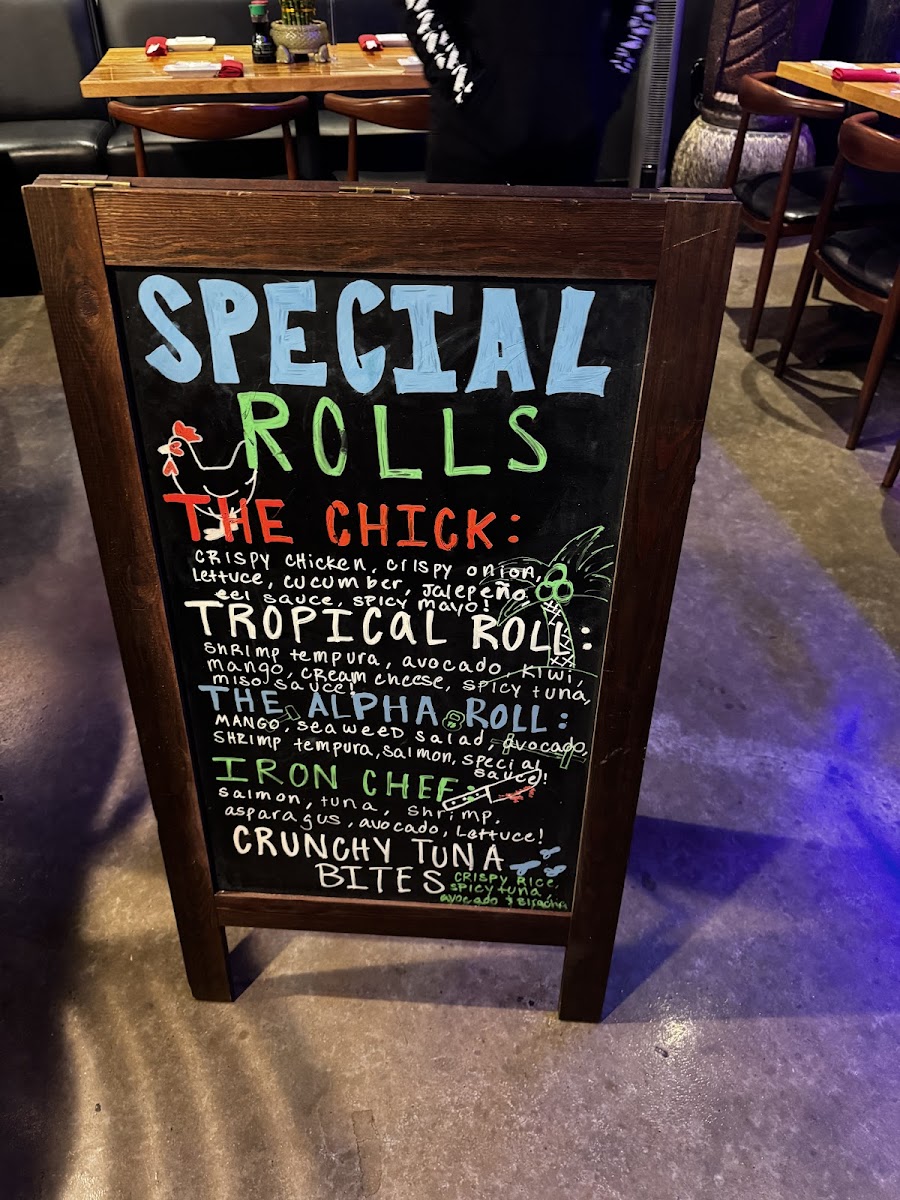 SPECIAL
ROLLS
THE CHICK:
CRISPY CHICKEN, CRISPY ONION,
LETTUCE, CUCUMBER, JALEPEÑO
eel sauce, spicy mayo!
TROPICAL ROLL:
SHRIMP tempura, avocado, KIWI,
mango, cream cheese, spicy tuna,
miso sauce!
THE ALPHA ROLL:
MANGO, seaweed salad, avocado,
SHRIMP tempura, salmon, special
sauce!
IRON CHEF:
salmon, tuna, shrimp,
asparagus, avocado, Lettuce!
CRUNCHY TUNA
BITES
CRISPY RICE,
spicy tuna,
avocado &